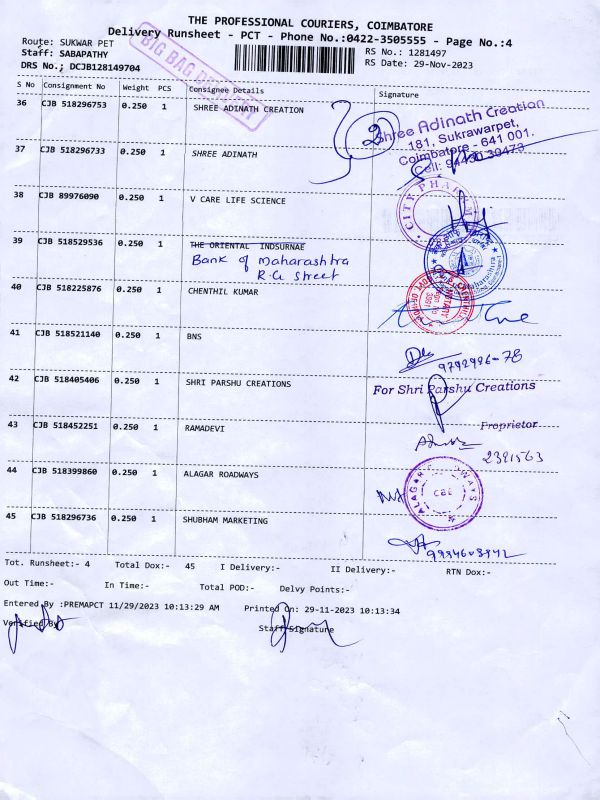 THE PROFESSIONAL COURIERS, COIMBATORE
Delivery Runsheet - PCT - Phone No.:0422-3505555 - Page No.:4
Route: SUKWAR PET
RS No.: 1281497
Staff: SABAPATHY
RS Date: 29-Nov-2023
DRS No.; DCJB128149704
BIG BAG
S No Consignment No Weight PCS Consignee Details Signature
36 CJB 518296753 0.250 1 SHREE ADINATH CREATION
Shree Adinath Creation
181, Sukrawarpet,
Coimbatore - 641 001.
Cell: 94430 39473
37 CJB 518296733 0.250 1 SHREE ADINATH
38 CJB 89976090 0.250 1 V CARE LIFE SCIENCE
CITY PHARM
39 CJB 518529536 0.250 1 THE ORIENTAL INDSURNAE
Bank of Maharashtra
R.G street
40 CJB 518225876 0.250 1 CHENTHIL KUMAR
NOTARY
41 CJB 518521140 0.250 1 BNS
42 CJB 518405406 0.250 1 SHRI PARSHU CREATIONS
For Shri Parshu Creations
Proprietor
43 CJB 518452251 0.250 1 RAMADEVI
2391563
44 CJB 518399860 0.250 1 ALAGAR ROADWAYS
ALAGAR ROADWAYS
CBE
45 CJB 518296736 0.250 1 SHUBHAM MARKETING
Tot. Runsheet:- 4 Total Dox:- 45 I Delivery:- II Delivery:- RTN Dox:-
Out Time:- In Time:- Total POD:- Delvy Points:-
Entered By :PREMAPCT 11/29/2023 10:13:29 AM Printed On: 29-11-2023 10:13:34
Verified By
Staff Signature